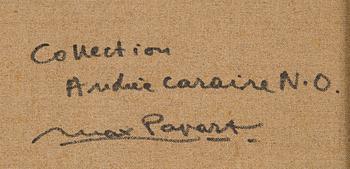 Collection
Andrée Caraire N.O.
Max Papart.